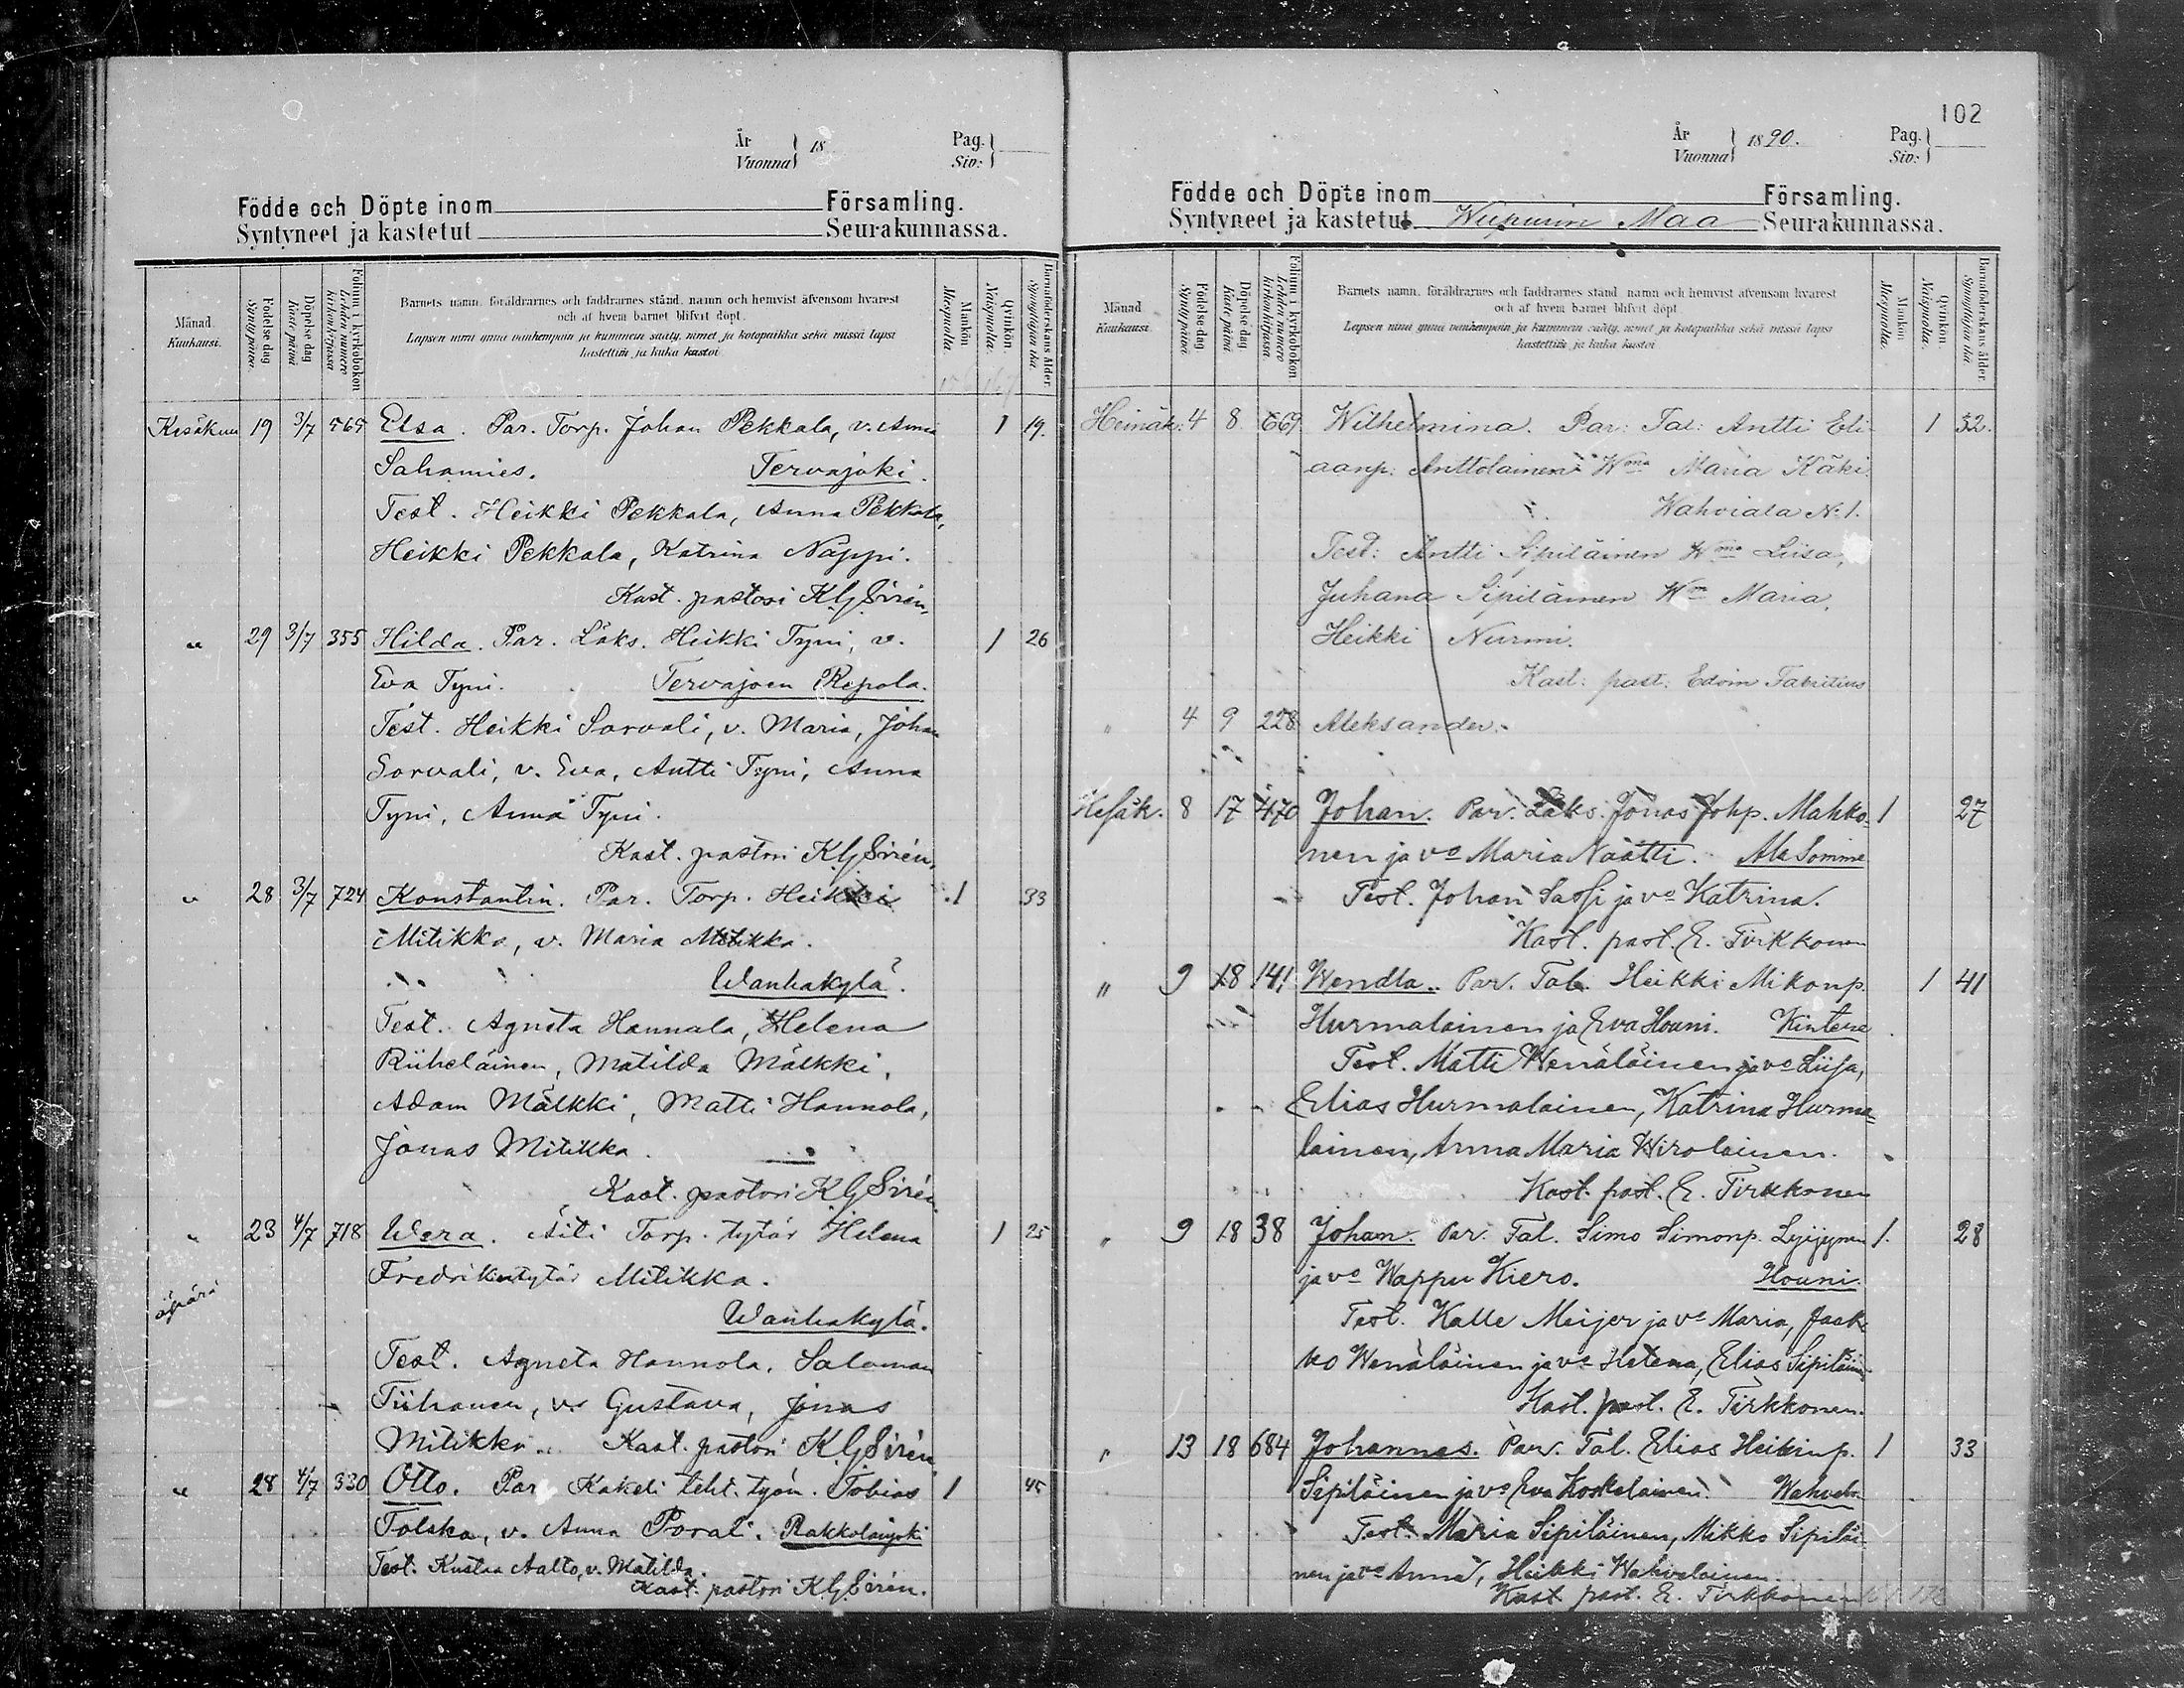 År
Vuonna } 18
Pag.
Siv: }
Födde och Döpte inom Församling.
Syntyneet ja kastetut Seurakunnassa.
Månad.
Kuukausi.
Födelse dag
Syntypäivä.
Döpelse dag
Kaste päivä
Folium i kyrkoboken
Lehden numero kirkonkirjassa
Barnets namn, föräldrarnes och faddrarnes stånd, namn och hemvist äfvensom hvarest
och af hvem barnet blifvit döpt.
Lapsen nimi ynnä vanhempain ja kummein sääty, nimet ja kotopaikka sekä missä lapsi
kastettiin ja kuka kastoi
Mankön.
Miespuolia.
Qvinkön.
Naispuolia.
Barnaföderskans ålder.
Synnyttäjän ikä.
Kesäkuu 19 3/7 565 Elsa. Par. Torp. Johan Pekkala, v. Anna 1 19.
Sahamies. Tervajoki.
Test. Heikki Pekkala, Anna Pekkala,
Heikki Pekkala, Katrina Näppi.
Kast. pastori K G Sirén.
" 29 3/7 355 Hilda. Par. Läks. Heikki Tyni, v. 1 26
Eva Tyni. Tervajoen Repola.
Test. Heikki Sorvali, v. Maria, Johan
Sorvali, v. Eva, Antti Tyni, Anna
Tyni, Anna Tyni.
Kast. pastori K G Sirén.
" 28 3/7 724 Konstantin. Par. Torp. Heikki 1 33
Mitikka, v. Maria Mitikka.
Wanhakylä.
Test. Agneta Hannula, Helena
Riiheläinen, Matilda Mälkki,
Adam Mälkki, Matti Hannola,
Jonas Mitikka.
Kast. pastori K G Sirén
" 23 4/7 718 Wera. Äiti Torp. tytär Helena 1 25
Fredrikintytär Mitikka.
äpärä
Wanhakylä.
Test. Agneta Hannola, Saloman
Tiihonen, v. Gustava, Jonas
Mitikka. Kast. pastori K G Sirén
" 28 4/7 330 Otto. Par. Kakeli teht. työm. Tobias 1 45
Tolska, v. Anna Porali. Rakkolanjoki
Test. Kustaa Aalto, v. Matilda.
Kast. pastori K G Sirén.
102
År
Vuonna } 1890.
Pag.
Siv: }
Födde och Döpte inom Församling.
Syntyneet ja kastetut Wiipurin Maa Seurakunnassa.
Månad
Kuukausi.
Födelse dag
Syntypäivä.
Döpelse dag
Kaste päivä
Folium i kyrkoboken
Lehden numero kirkonkirjassa.
Barnets namn, föräldrarnes och faddrarnes stånd, namn och hemvist äfvensom hvarest
och af hvem barnet blifvit döpt
Lapsen nimi ynnä vanhempain ja kummein sääty, nimet ja kotopaikka sekä missä lapsi
kastettiin ja kuka kastoi
Mankön
Miespuolia.
Qvinkön.
Naispuolia.
Barnaföderskans ålder.
Synnyttäjän ikä.
Heinäk. 4 8 669 Wilhelmina. Par: Tal: Antti Eli- 1 32.
aanp: Anttolainen Wmo Maria Käki.
Wahviala N:1.
Test: Antti Sipiläinen Wmo Liisa,
Juhana Sipiläinen Wmo Maria,
Heikki Nurmi.
Kast: past: Edvin Fabritius
" 4 9 228 Aleksander.
Kesäk. 8 17 470 Johan. Par. Läks. Jonas Johp. Mahko- 1 27
nen ja vo Maria Näätti. Ala Somme
Test. Johan Sassi ja vo Katrina.
Kast. past. E. Tirkkonen
" 9 18 141 Wendla. Par. Tal. Heikki Mikonp. 1 41
Hurmalainen ja Eva Houni. Kintere
Test. Matti Wenäläinen ja vo Liisa,
Elias Hurmalainen, Katrina Hurma-
lainen, Anna Maria Wirolainen.
Kast. past. E. Tirkkonen
" 9 18 38 Johan. Par. Tal. Simo Simonp. 1. 28
ja vo Wappu Kiero. Houni.
Test. Kalle Meijer ja vo Maria, Jaak-
ko Wenäläinen ja vo Helena, Elias Sipiläin.
Kast. past. E. Tirkkonen.
" 13 18 684 Johannes. Par. Tal. Elias Heikinp. 1 33
Sipiläinen ja vo Eva Koskelainen.
Test. Maria Sipiläinen, Mikko Sipiläi-
nen ja vo Anna, Heikki Wahvelainen.
Kast. past. E. Tirkkonen